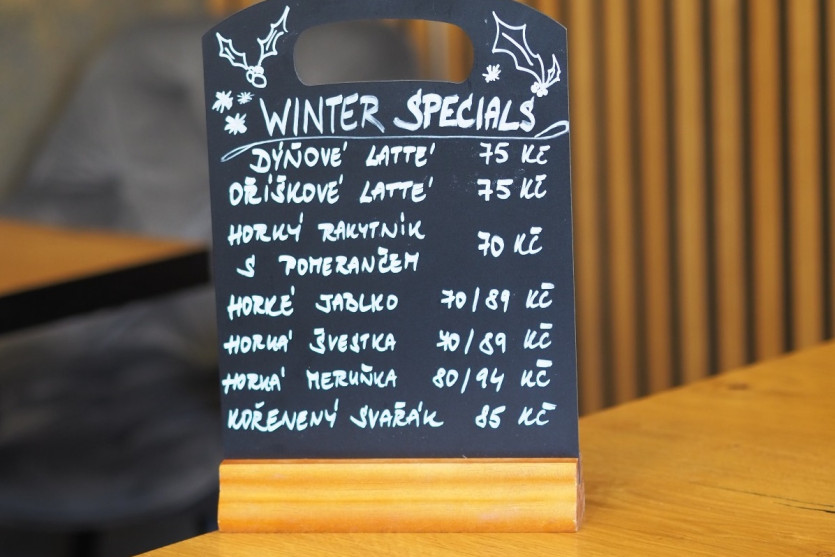 WINTER SPECIALS
DÝŇOVÉ LATTÉ 75 KČ
OŘÍŠKOVÉ LATTÉ 75 KČ
HORKÝ RAKYTNÍK
S POMERANČEM 70 KČ
HORKÉ JABLKO 70/89 KČ
HORKÁ ŠVESTKA 70/89 KČ
HORKÁ MERUŇKA 80/94 KČ
KOŘENENÝ SVAŘÁK 85 KČ